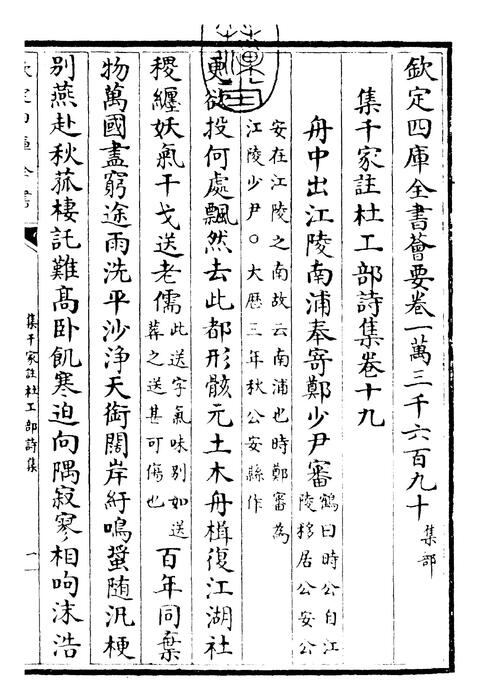 欽定四庫全書薈要卷一萬三千六百九十 集部
集千家註杜工部詩集卷十九
舟中出江陵南浦奉寄鄭少尹審 鶴曰時公自江
陵移居公安公
安在江陵之南故云南浦也時鄭審為
江陵少尹○大厯三年秋公安縣作
更欲投何處飄然去此都形骸元土木舟楫復江湖社
稷纏妖氣干戈送老儒 此送字氣味別如送
葬之送甚可傷也 百年同棄
物萬國盡窮途雨洗平沙淨天銜闊岸紆鳴螿随汎梗
別燕赴秋菰棲託難髙卧飢寒迫向隅寂寥相呴沫浩
集千家註杜工部詩集
一